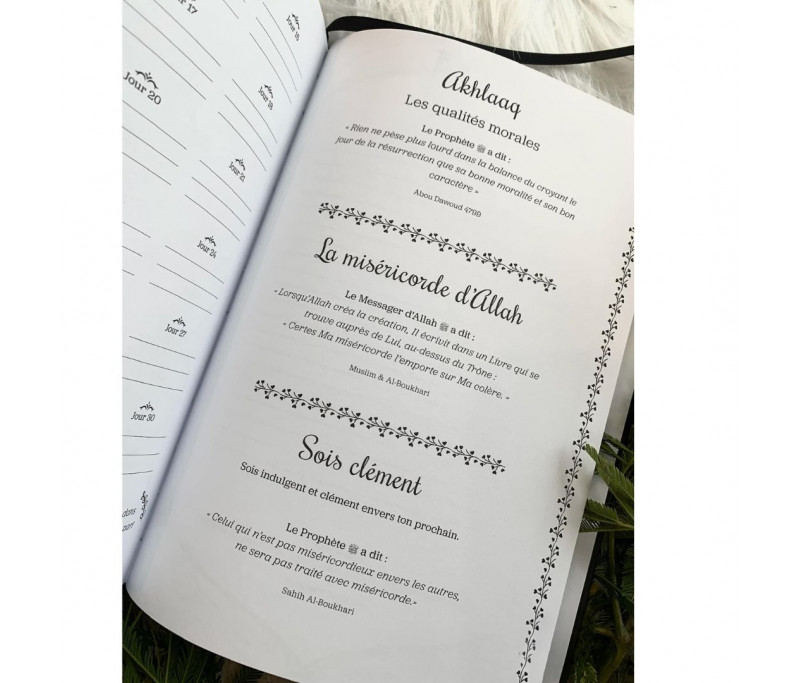 Jour 17
Jour 20
Jour 15
Jour 18
Jour 21
Jour 24
Jour 27
Jour 30
dans
Akhlaaq
Les qualités morales
Le Prophète ﷺ a dit :
« Rien ne pèse plus lourd dans la balance du croyant le
jour de la résurrection que sa bonne moralité et son bon
caractère »
Abou Dawoud 4799
La miséricorde d'Allah
Le Messager d'Allah ﷺ a dit :
« Lorsqu'Allah créa la création, Il écrivit dans un Livre qui se
trouve auprès de Lui, au-dessus du Trône :
« Certes Ma miséricorde l'emporte sur Ma colère. »
Muslim & Al-Boukhari
Sois clément
Sois indulgent et clément envers ton prochain.
Le Prophète ﷺ a dit :
« Celui qui n'est pas miséricordieux envers les autres,
ne sera pas traité avec miséricorde.»
Sahih Al-Boukhari